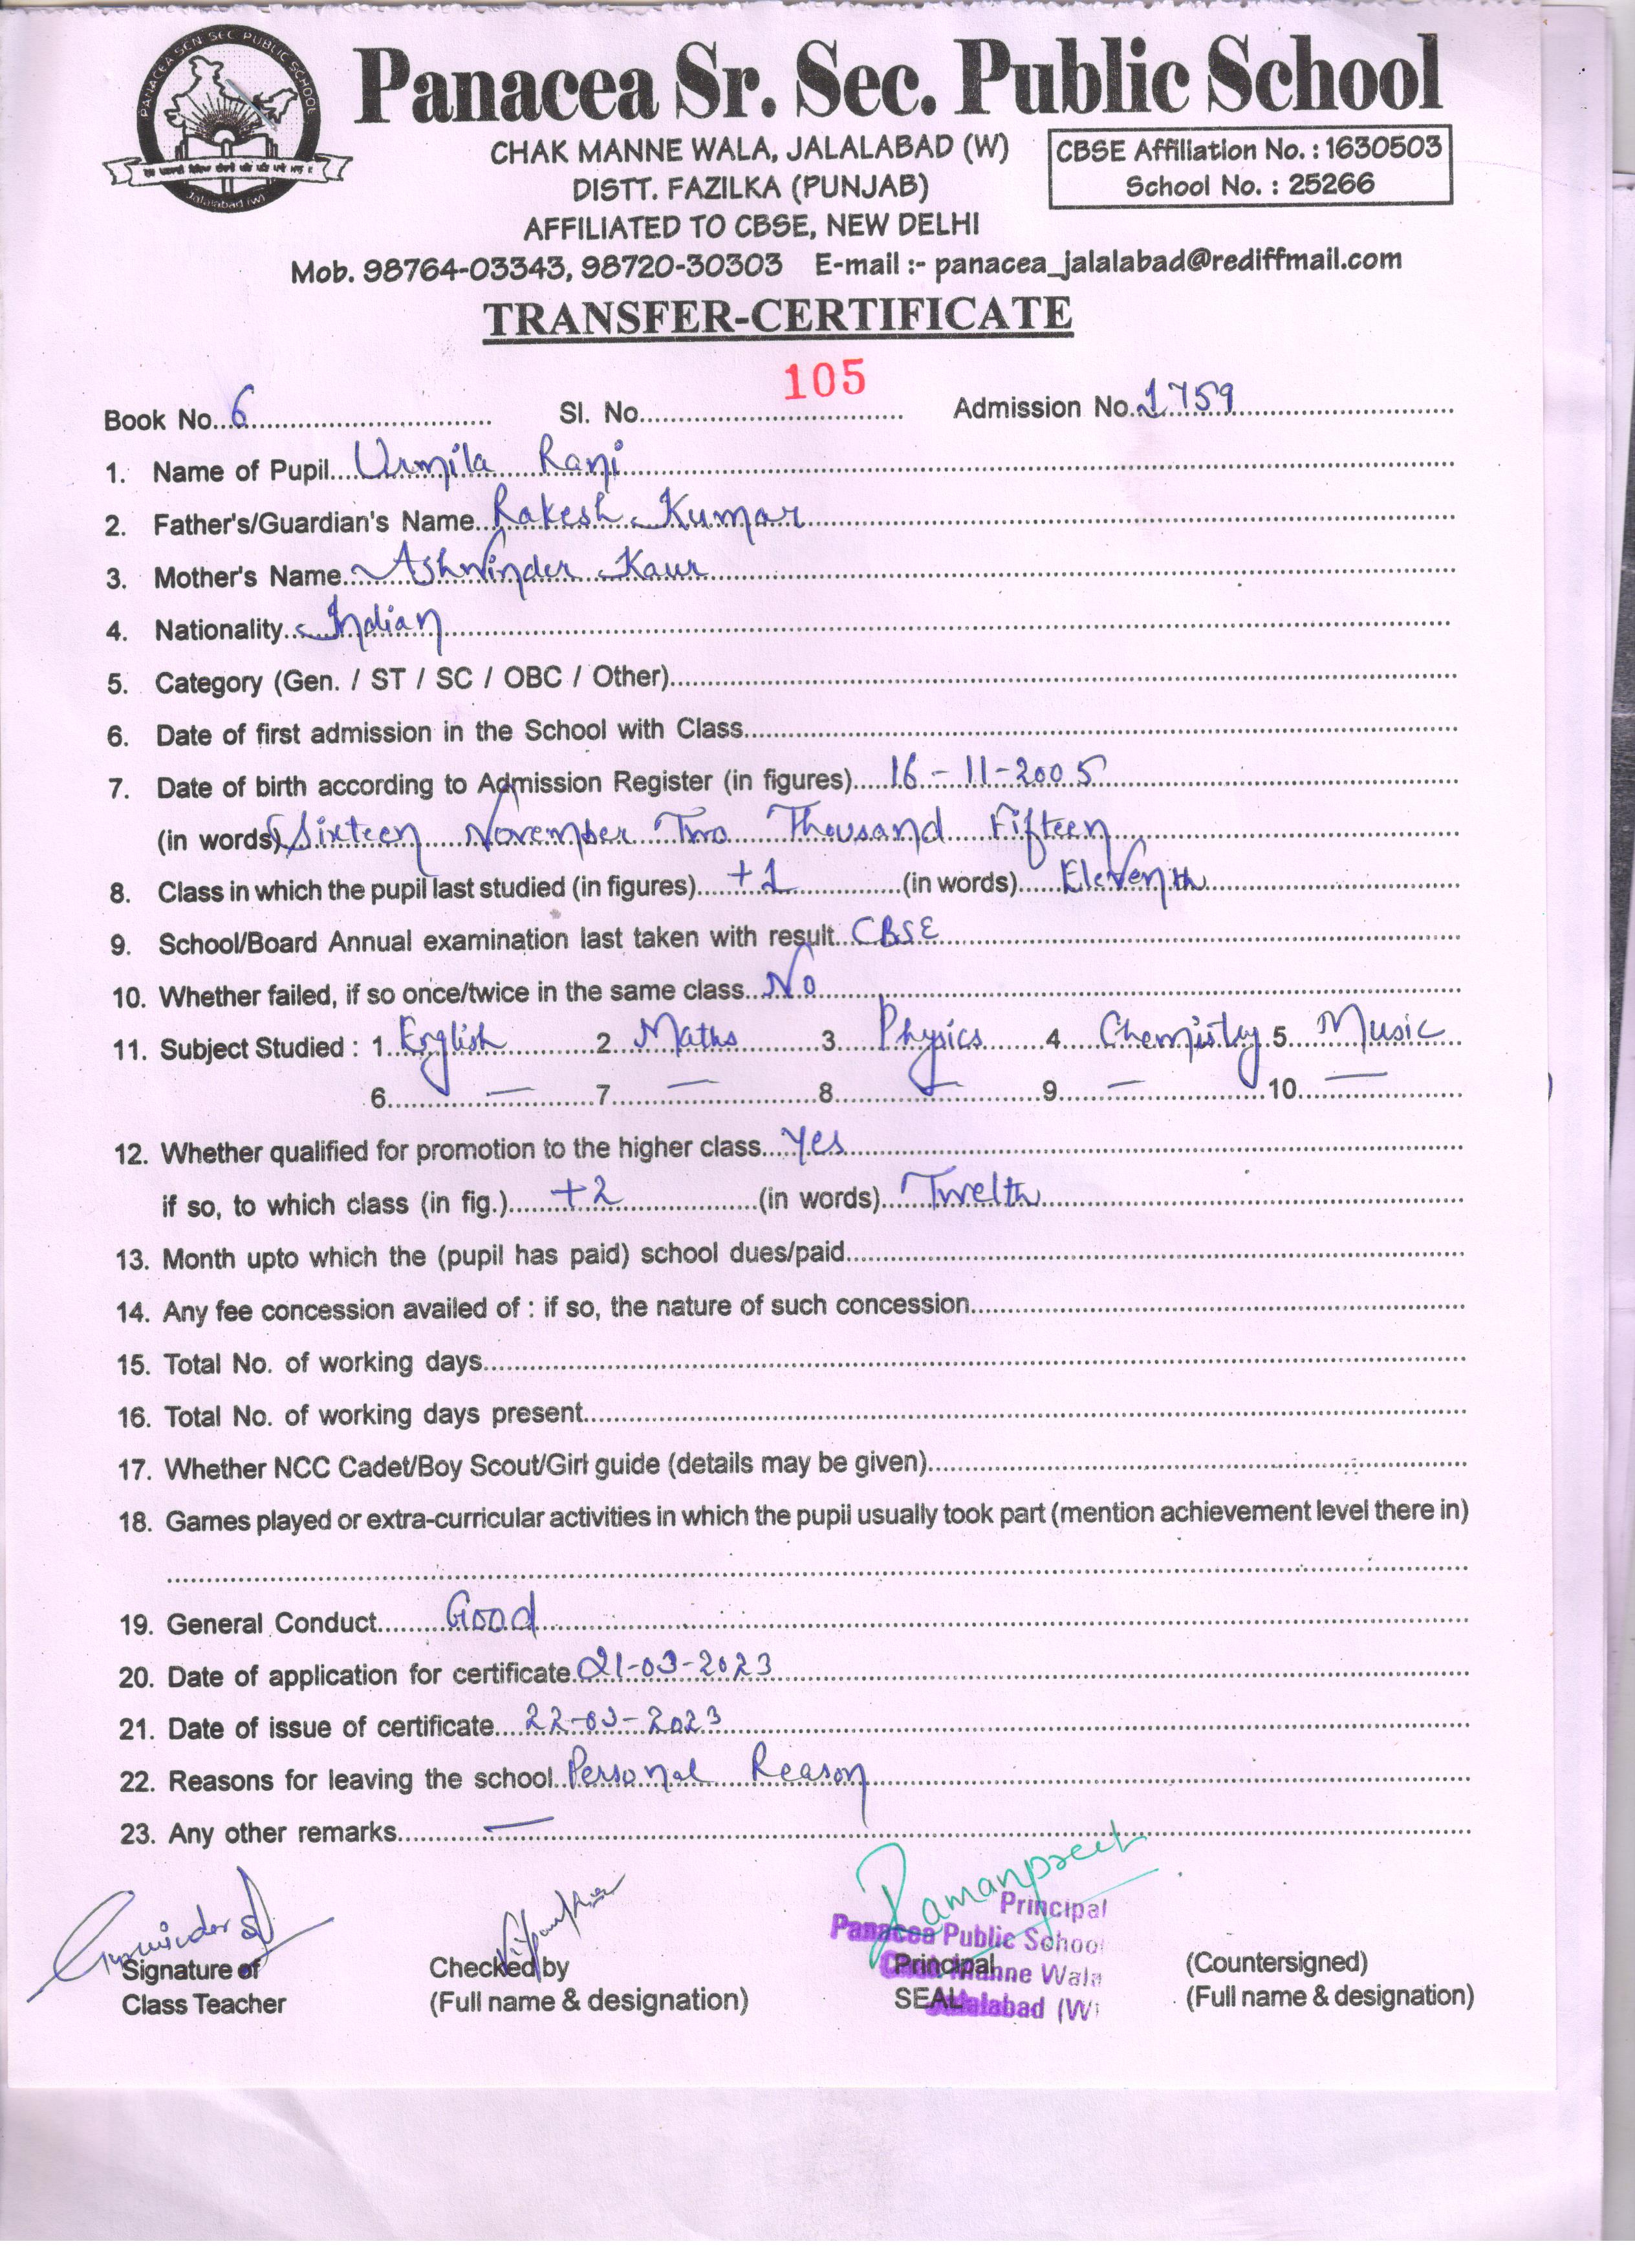 PANACEA SEN SEC PUBLIC SCHOOL
Jalalabad (W)
Panacea Sr. Sec. Public School
CHAK MANNE WALA, JALALABAD (W)
CBSE Affiliation No. : 1630503
School No. : 25266
DISTT. FAZILKA (PUNJAB)
AFFILIATED TO CBSE, NEW DELHI
Mob. 98764-03343, 98720-30303 E-mail :- panacea_jalalabad@rediffmail.com
TRANSFER-CERTIFICATE
Book No. 6 Sl. No. 105 Admission No. 1759
1. Name of Pupil Urmila Rani
2. Father's/Guardian's Name Rakesh Kumar
3. Mother's Name Ashwinder Kaur
4. Nationality Indian
5. Category (Gen. / ST / SC / OBC / Other)
6. Date of first admission in the School with Class
7. Date of birth according to Admission Register (in figures) 16-11-2005
(in words) Sixteen November Two Thousand Fifteen
8. Class in which the pupil last studied (in figures) +1 (in words) Eleventh
9. School/Board Annual examination last taken with result CBSE
10. Whether failed, if so once/twice in the same class No
11. Subject Studied : 1. English 2. Maths 3. Physics 4. Chemistry 5. Music
6. — 7. — 8. — 9. — 10. —
12. Whether qualified for promotion to the higher class yes
if so, to which class (in fig.) +2 (in words) Twelth
13. Month upto which the (pupil has paid) school dues/paid
14. Any fee concession availed of : if so, the nature of such concession
15. Total No. of working days
16. Total No. of working days present
17. Whether NCC Cadet/Boy Scout/Girl guide (details may be given)
18. Games played or extra-curricular activities in which the pupil usually took part (mention achievement level there in)
19. General Conduct Good
20. Date of application for certificate 21-03-2023
21. Date of issue of certificate 22-03-2023
22. Reasons for leaving the school Personal Reason
23. Any other remarks —
Ramanpreet
Principal
Panacea Public School
Manne Wala
Jalalabad (W)
Signature of Checked by Principal (Countersigned)
Class Teacher (Full name & designation) SEAL (Full name & designation)